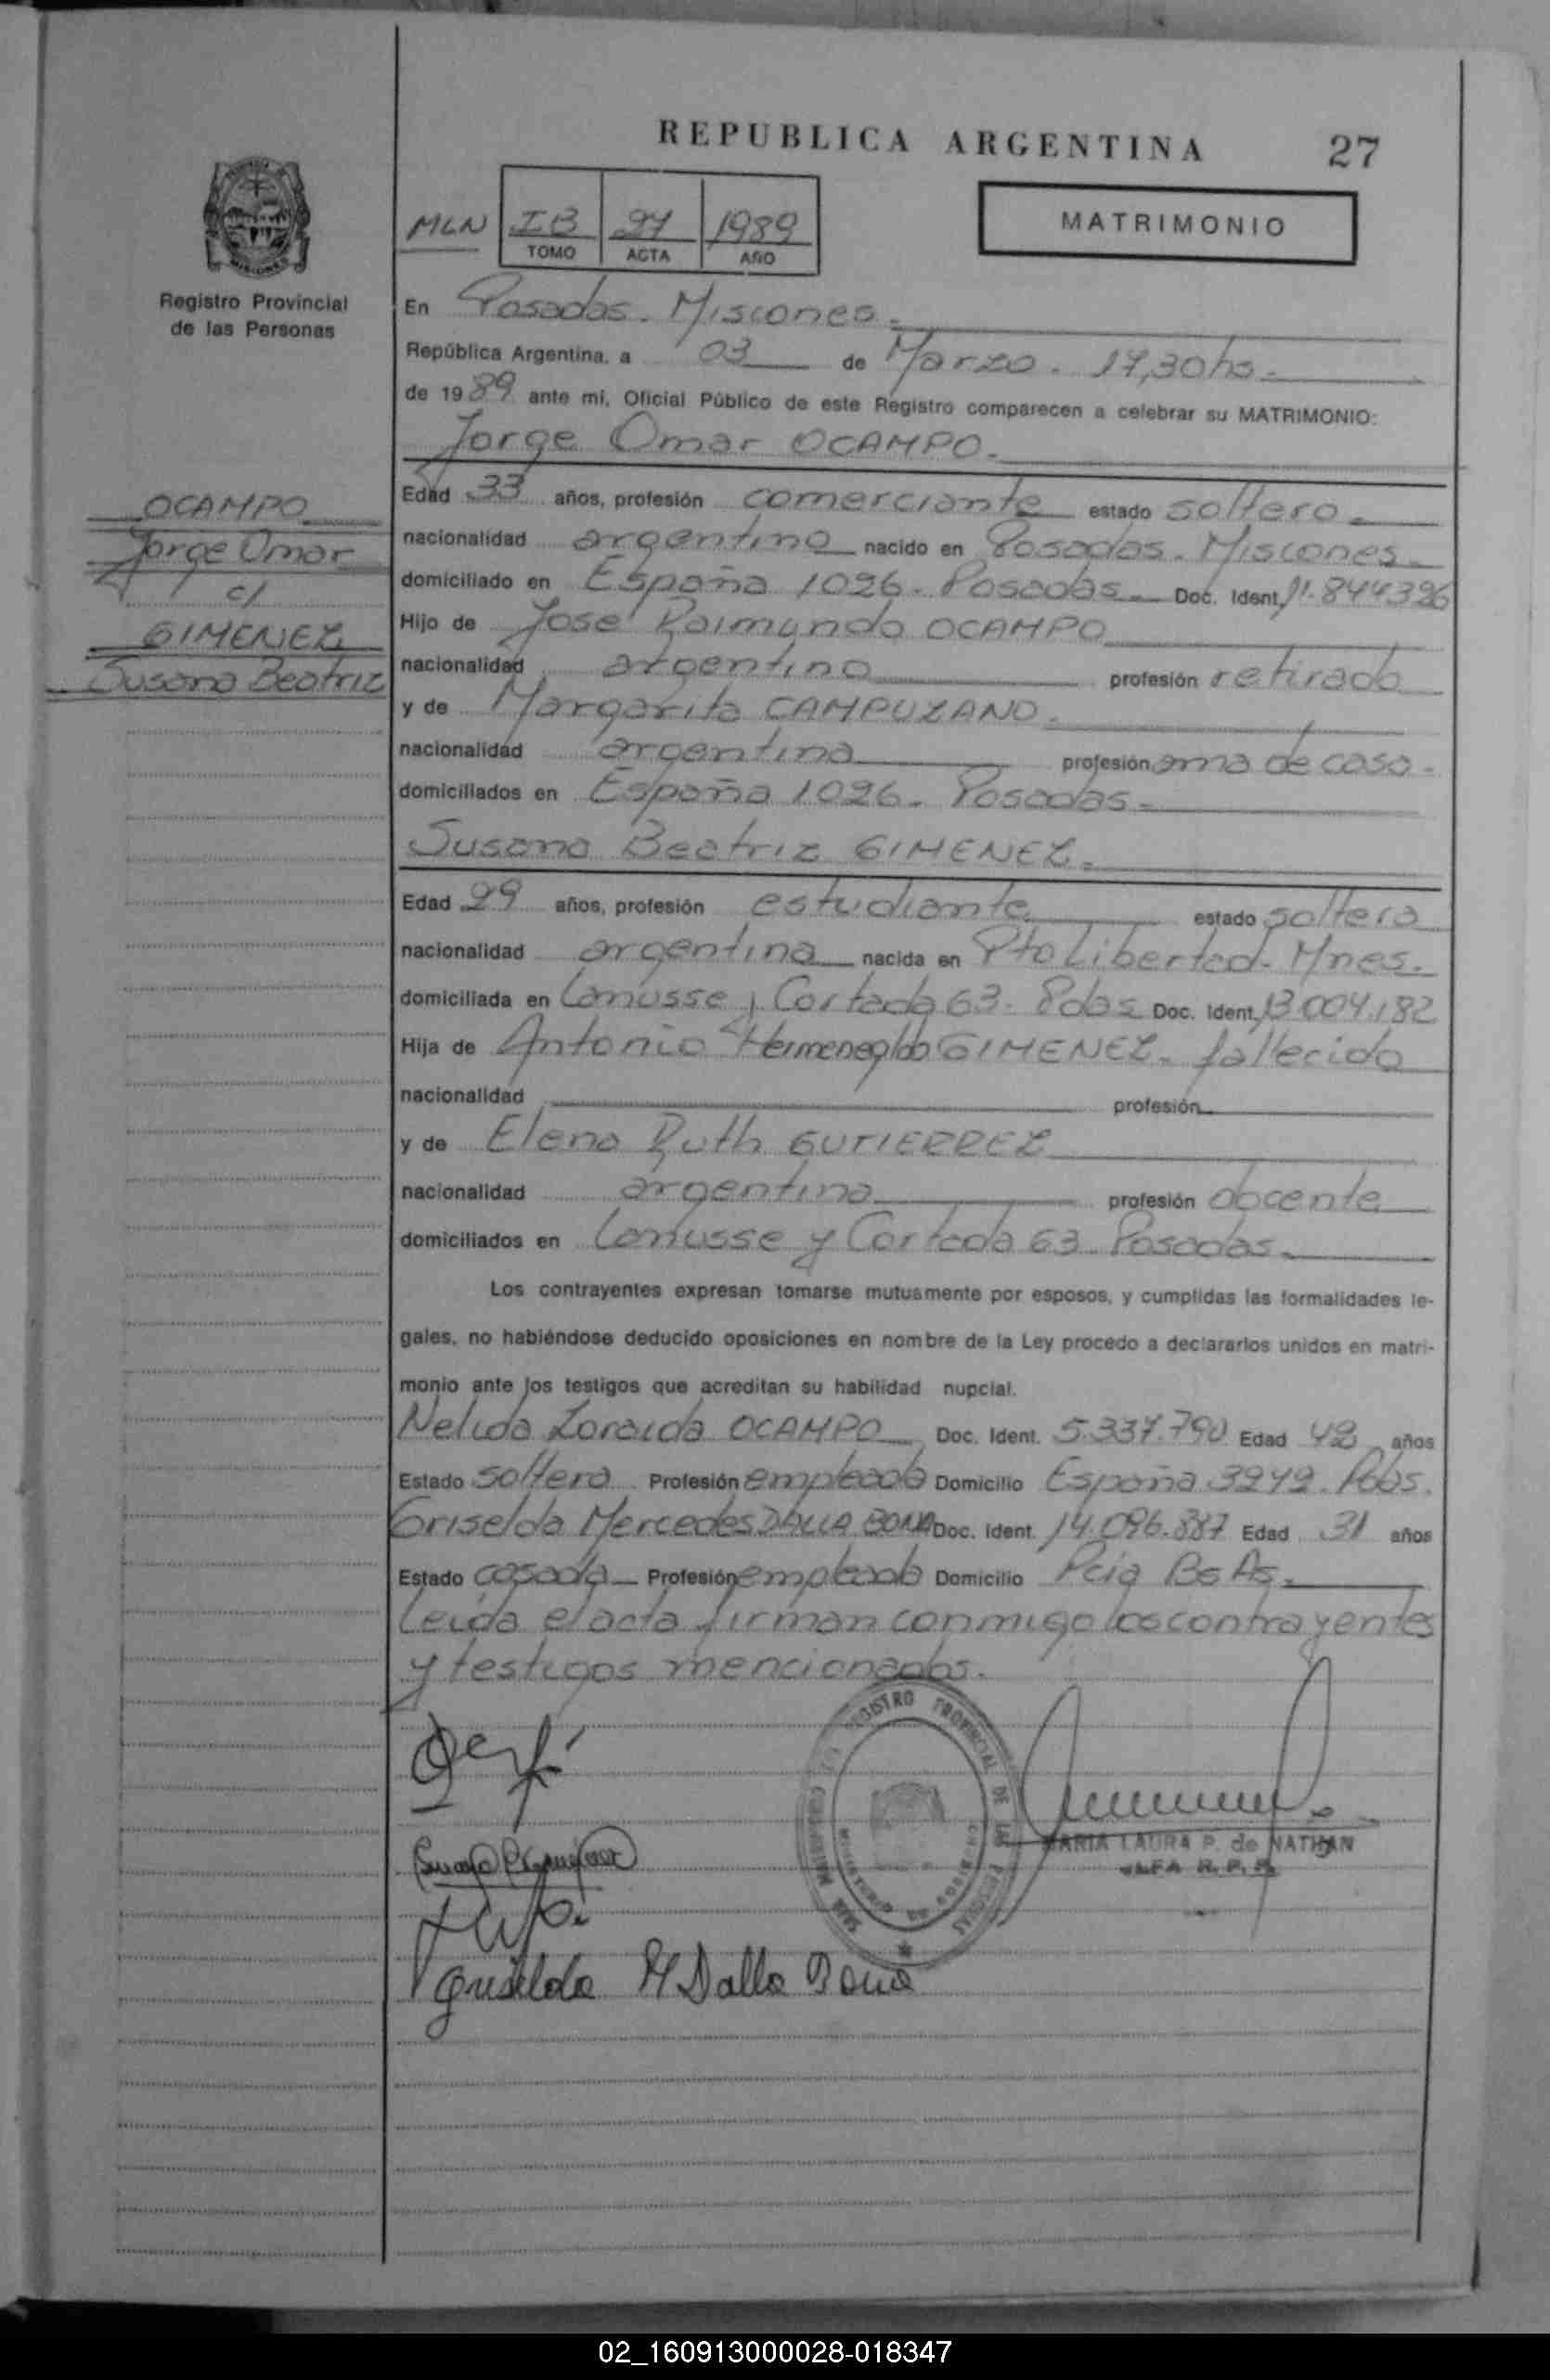 REPUBLICA ARGENTINA 27
MATRIMONIO
MLN IB 97 1989
TOMO ACTA AÑO
Registro Provincial
de las Personas
En Posadas. Misiones.
República Argentina, a 03 de Marzo. 17,30hs.
de 1989 ante mi, Oficial Público de este Registro comparecen a celebrar su MATRIMONIO:
Jorge Omar OCAMPO.
OCAMPO
Jorge Omar
c/
GIMENEZ
Susana Beatriz
Edad 33 años, profesión comerciante estado soltero.
nacionalidad argentino nacido en Posadas. Misiones.
domiciliado en España 1026. Posadas. Doc. Ident. 11.844326
Hijo de José Raimundo OCAMPO
nacionalidad argentino profesión retirado
y de Margarita CAMPUZANO.
nacionalidad argentina profesión ama de casa.
domiciliados en España 1026. Posadas.
Susana Beatriz GIMENEZ.
Edad 29 años, profesión estudiante estado soltera
nacionalidad argentina nacida en Pto Libertad. Mnes.
domiciliada en Lanusse y Cortada 63. Pdas Doc. Ident. 13.004.182
Hija de Antonio Hermenegildo GIMENEZ. fallecido
nacionalidad profesión
y de Elena Ruth GUTIERREZ
nacionalidad argentina profesión docente
domiciliados en Lanusse y Cortada 63. Posadas.
Los contrayentes expresan tomarse mutuamente por esposos, y cumplidas las formalidades le-
gales, no habiéndose deducido oposiciones en nombre de la Ley procedo a declararlos unidos en matri-
monio ante los testigos que acreditan su habilidad nupcial.
Nelida Zoraida OCAMPO Doc. Ident. 5.337.790 Edad 42 años
Estado soltera Profesión empleada Domicilio España 3249. Pdas.
Griselda Mercedes DALLA BONA Doc. Ident. 14.096.387 Edad 31 años
Estado casada Profesión empleada Domicilio Pcia Bs As.
Leída el acta firman conmigo los contrayentes
y testigos mencionados.
REGISTRO PROVINCIAL DE LAS PERSONAS
MARIA LAURA P. de NATHAN
JEFA R. P. P.
Griselda M Dalla Bona
02_160913000028-018347